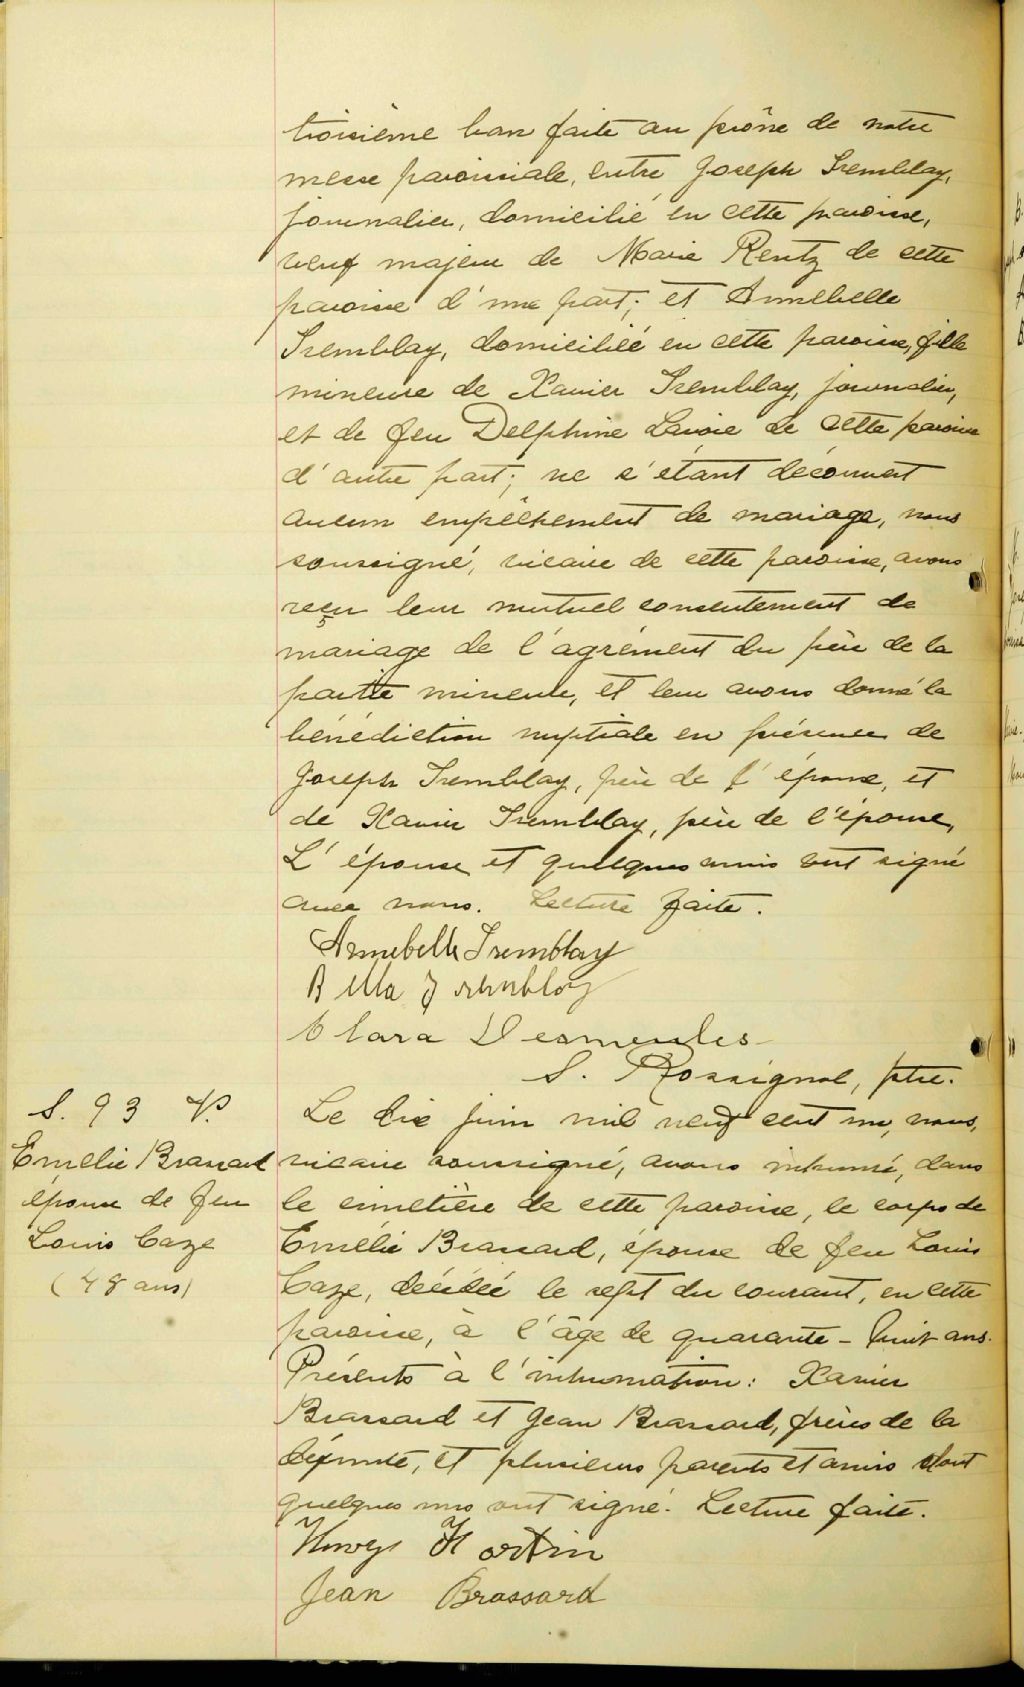 troisième ban faite au prône de notre
messe paroissiale, entre Joseph Tremblay,
journalier, domicilié en cette paroisse,
veuf majeur de Marie Rentz de cette
paroisse d'une part; et Annebelle
Tremblay, domiciliée en cette paroisse, fille
mineure de Xavier Tremblay, journalier,
et de feu Delphine Lavoie de cette paroisse
d'autre part; ne s'étant découvert
aucun empêchement de mariage, nous
soussigné, vicaire de cette paroisse, avons
reçu leur mutuel consentement de
mariage de l'agrément du père de la
partie mineure, et leur avons donné la
bénédiction nuptiale en présence de
Joseph Tremblay, père de l'époux, et
de Xavier Tremblay, père de l'épouse,
L'épouse et quelques amis ont signé
avec nous. Lecture faite.
Annebelle Tremblay
Bella Tremblay
Clara Desmeules
S. Rossignol, ptre.
S. 93
Emélie Brassard
épouse de feu
Louis Caze
(48 ans)
Le dix juin mil neuf cent un, nous,
vicaire soussigné, avons inhumé, dans
le cimetière de cette paroisse, le corps de
Emélie Brassard, épouse de feu Louis
Caze, décédée le sept du courant, en cette
paroisse, à l'âge de quarante-huit ans.
Présents à l'inhumation: Xavier
Brassard et Jean Brassard, frères de la
défunte, et plusieurs parents et amis dont
quelques uns ont signé. Lecture faite.
Fortin
Jean Brassard